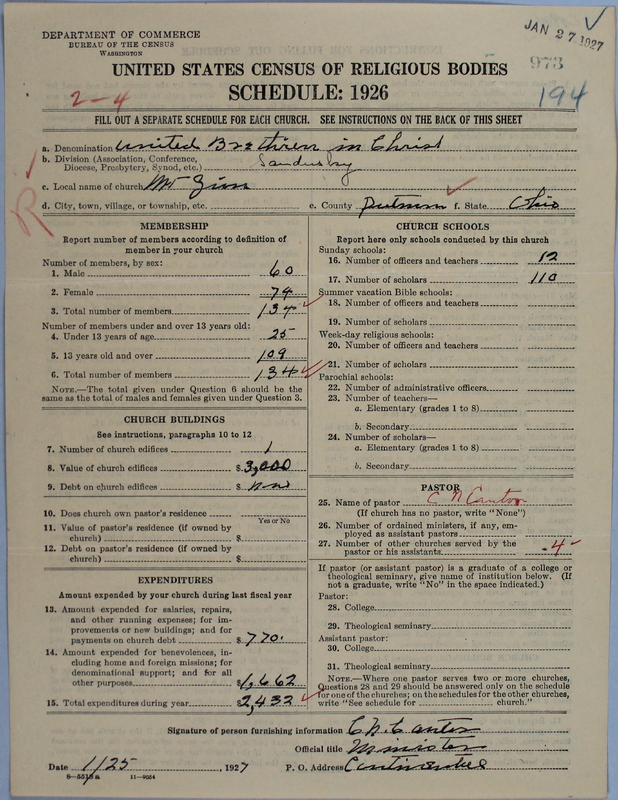 DEPARTMENT OF COMMERCE
BUREAU OF THE CENSUS
WASHINGTON
JAN 27 1927
973
UNITED STATES CENSUS OF RELIGIOUS BODIES
SCHEDULE: 1926
2-4
194
FILL OUT A SEPARATE SCHEDULE FOR EACH CHURCH. SEE INSTRUCTIONS ON THE BACK OF THIS SHEET
a. Denomination United Brethren in Christ
b. Division (Association, Conference, Diocese, Presbytery, Synod, etc.) Sandusky
c. Local name of church Mt Zion
d. City, town, village, or township, etc. e. County Putnam f. State Ohio
R
MEMBERSHIP
Report number of members according to definition of
member in your church
Number of members, by sex:
1. Male 60
2. Female 74
3. Total number of members 134
Number of members under and over 13 years old:
4. Under 13 years of age 25
5. 13 years old and over 109
6. Total number of members 134
NOTE.—The total given under Question 6 should be
same as the total of males and females given under Question 3.
CHURCH BUILDINGS
See instructions, paragraphs 10 to 12
7. Number of church edifices 1
8. Value of church edifices $ 3,000
9. Debt on church edifices $ none
10. Does church own pastor's residence
Yes or No
11. Value of pastor's residence (if owned by
church) $
12. Debt on pastor's residence (if owned by
church) $
EXPENDITURES
Amount expended by your church during last fiscal year
13. Amount expended for salaries, repairs,
and other running expenses; for im-
provements or new buildings; and for
payments on church debt $ 770.
14. Amount expended for benevolences, in-
cluding home and foreign missions; for
denominational support; and for all
other purposes $ 1,662
15. Total expenditures during year $ 2,432
CHURCH SCHOOLS
Report here only schools conducted by this church
Sunday schools:
16. Number of officers and teachers 12
17. Number of scholars 110
Summer vacation Bible schools:
18. Number of officers and teachers
19. Number of scholars
Week-day religious schools:
20. Number of officers and teachers
21. Number of scholars
Parochial schools:
22. Number of administrative officers
23. Number of teachers—
a. Elementary (grades 1 to 8)
b. Secondary
24. Number of scholars—
a. Elementary (grades 1 to 8)
b. Secondary
PASTOR
25. Name of pastor C N Cantor
(If church has no pastor, write "None")
26. Number of ordained ministers, if any, em-
ployed as assistant pastors
27. Number of other churches served by the
pastor or his assistants 4
If pastor (or assistant pastor) is a graduate of a college or
theological seminary, give name of institution below. (If
not a graduate, write "No" in the space indicated.)
Pastor:
28. College
29. Theological seminary
Assistant pastor:
30. College
31. Theological seminary
NOTE.—Where one pastor serves two or more churches,
Questions 28 and 29 should be answered only on the schedule
for one of the churches; on the schedules for the other churches,
write "See schedule for church."
Signature of person furnishing information C. N. Cantor
Official title Minister
Date 1/25, 1927 P. O. Address Continental
8-5513a 11-9054